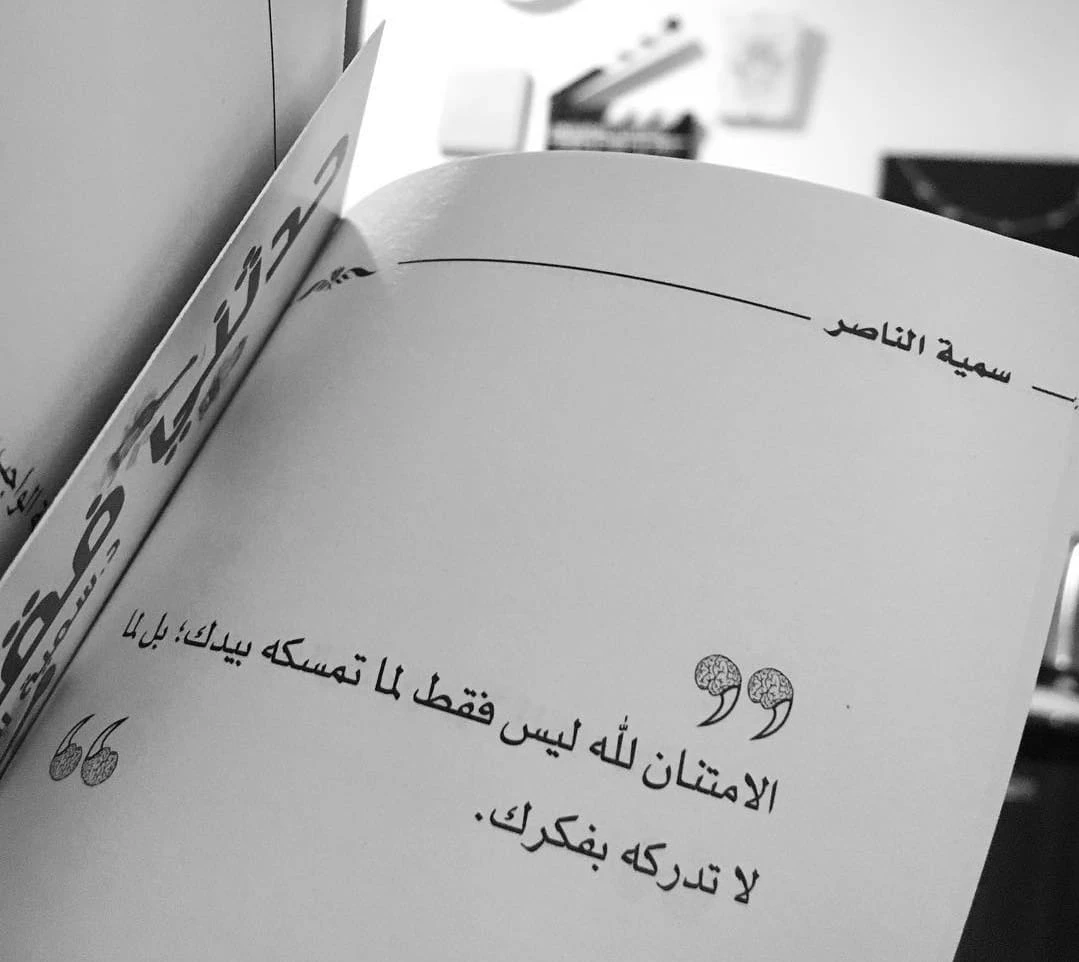 سمية الناصر
الامتنان لله ليس فقط لما تمسكه بيدك؛ بل لما
لا تدركه بفكرك.
حدثنا